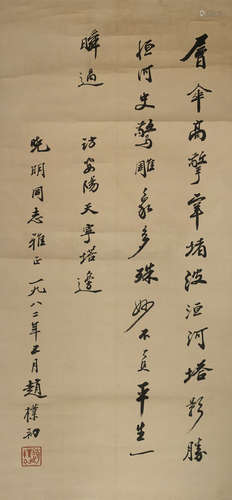 層傘高擎窣堵波洹河塔影勝
恒河更驚雕象多殊妙不負平生一
瞬過
訪安陽天寧塔
明同志雅正 一九八二年五月 趙樸初